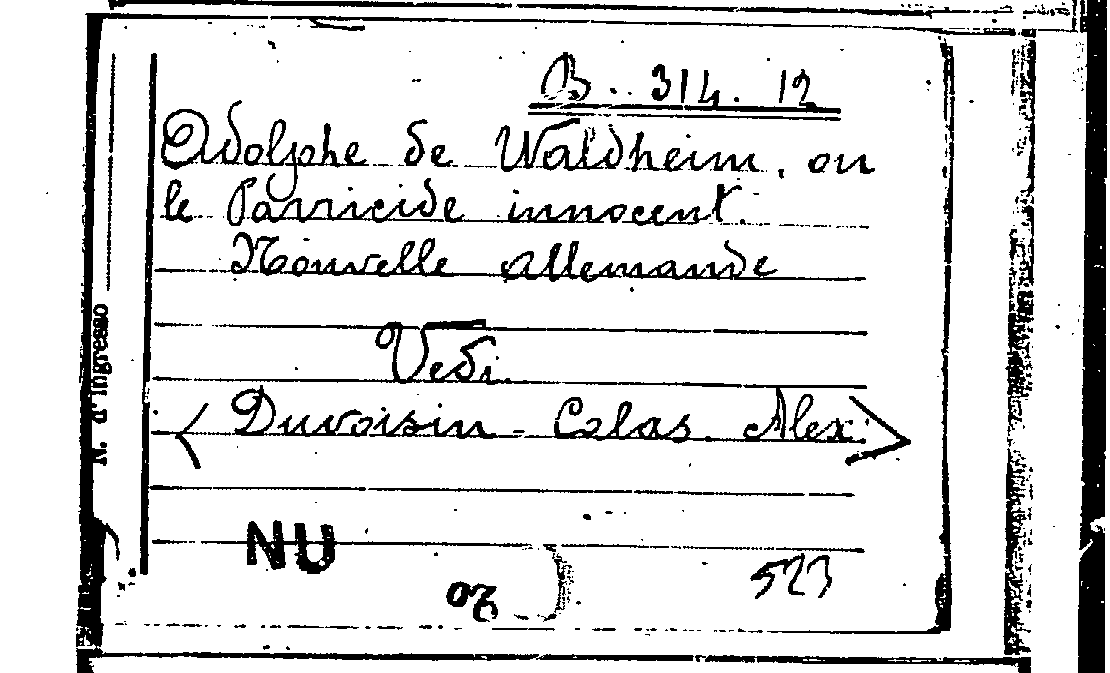 B. 314. 12
Adolphe de Waldheim, ou
le Parricide innocent.
Nouvelle allemande
Vedi
< Duvoisin - Calas. Alex. >
N. d'ingresso
NU
523